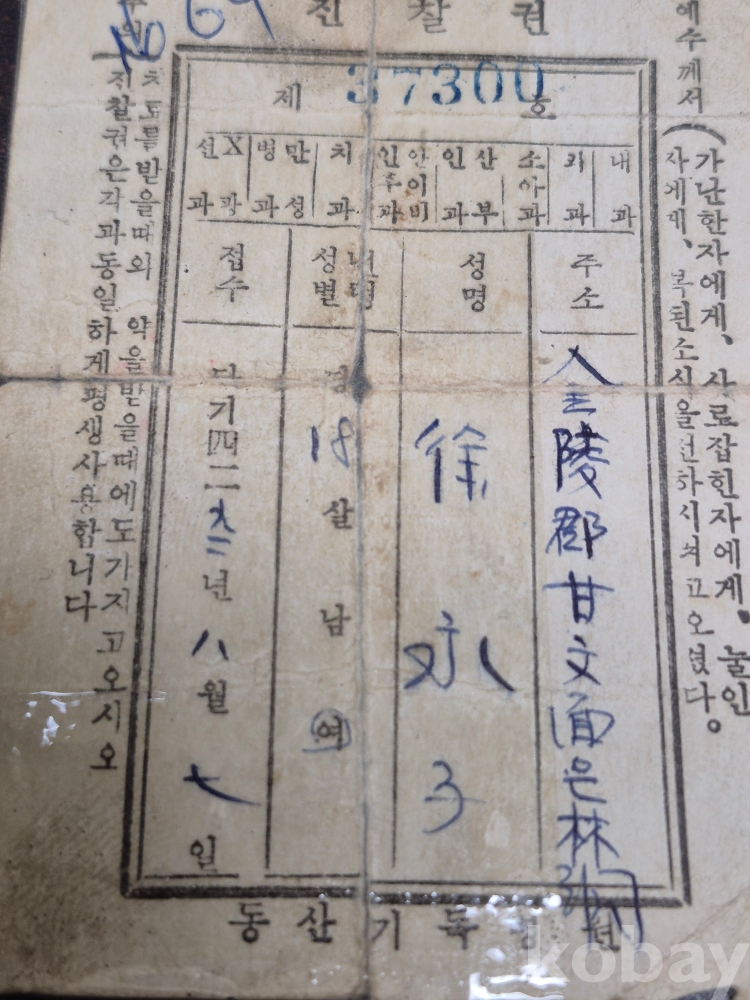 진찰권
No 69
예수께서
(가난한자에게, 사로잡힌자에게, 눌인
자에게, 복된소식을전하시려고오셨다。
제 37300 호
내과
외과
소아과
산부인과
안이비인후과
치과
만성병과
X선과
주소
성명
년령 성별
접수
金陵郡甘文面
林
徐永子
18 살 남 여
단기四二九三년 八월 七일
치료를받을때와 약을받을때에도가지고오시오
진찰권은각과동일하게평생사용합니다
동산기독병원
kobay